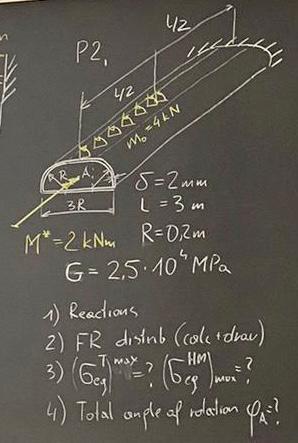 L/2
P2,
L/2
m₀=4kN
R A
δ=2mm
3R
L=3m
M*=2kNm
R=0,2m
G=2,5·10⁴MPa
1) Reactions
2) FR distrib (calc+draw)
3) (σeqᵀ)max=? (σeqᴴᴹ)max=?
4) Total angle of rotation φ_A=?